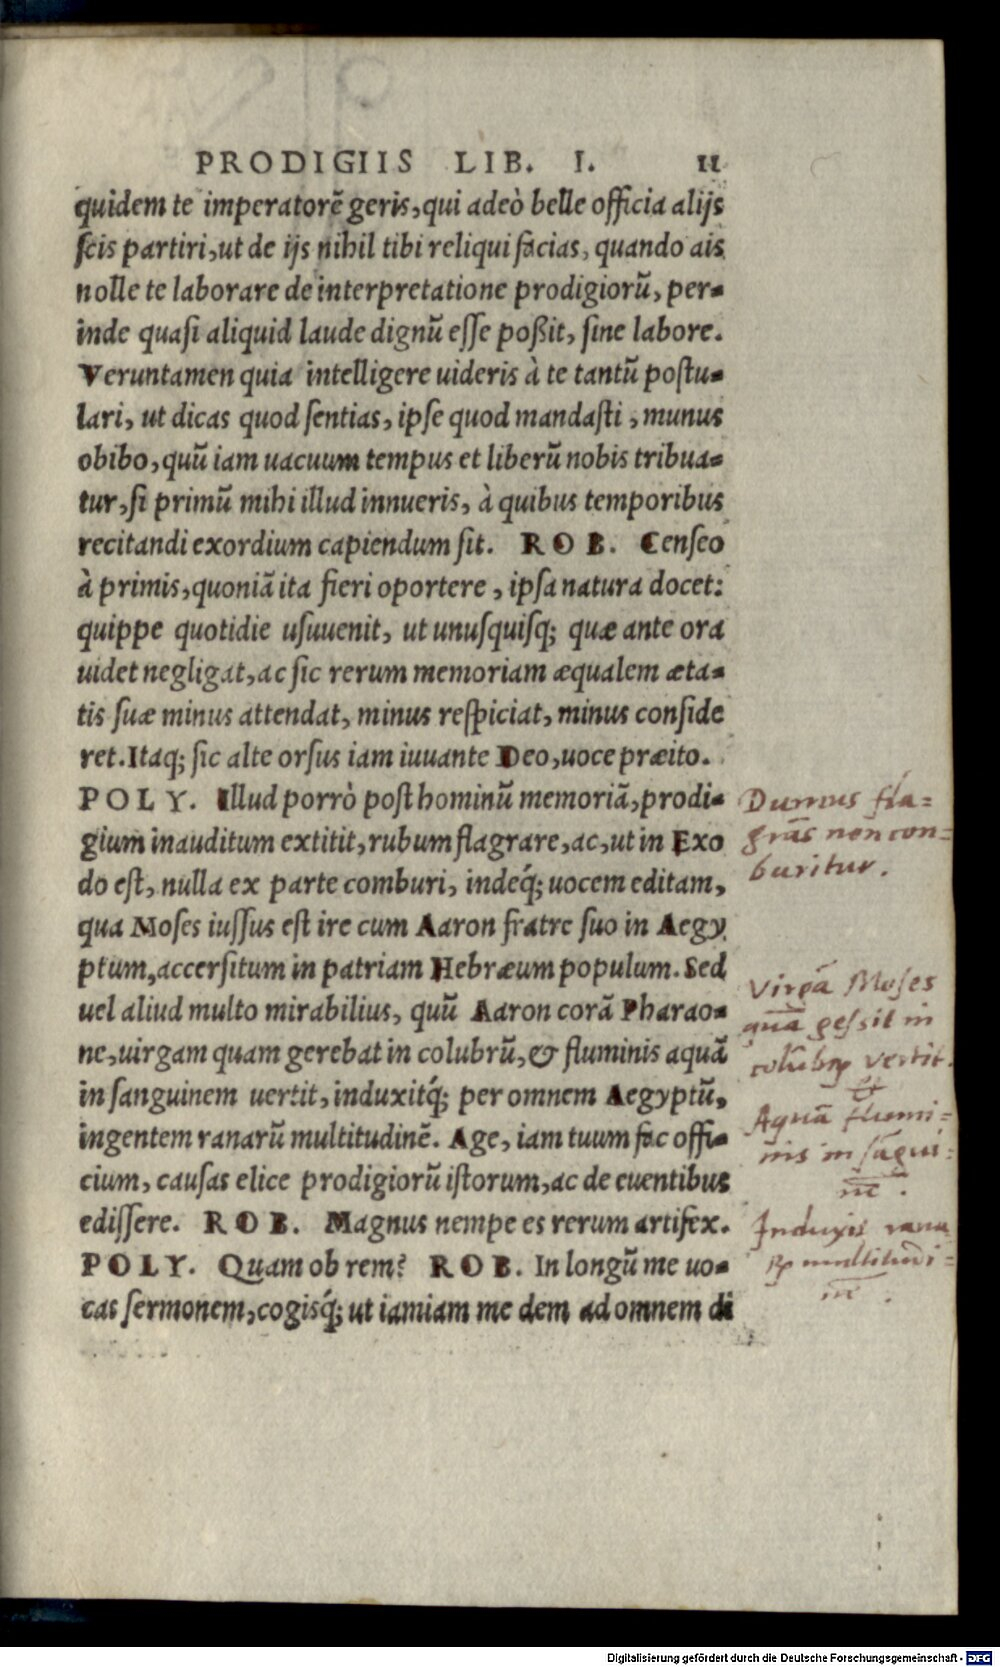 PRODIGIIS LIB. I. 11
quidem te imperatorē geris, qui adeò belle officia alijs
scis partiri, ut de ijs nihil tibi reliqui facias, quando ais
nolle te laborare de interpretatione prodigiorū, per-
inde quasi aliquid laude dignū esse poßit, sine labore.
Veruntamen quia intelligere uideris à te tantū postu-
lari, ut dicas quod sentias, ipse quod mandasti, munus
obibo, quū iam uacuum tempus et liberū nobis tribua-
tur, si primū mihi illud innueris, à quibus temporibus
recitandi exordium capiendum sit. ROB. Censeo
à primis, quoniā ita fieri oportere, ipsa natura docet:
quippe quotidie usuuenit, ut unusquisq; quæ ante ora
uidet negligat, ac sic rerum memoriam æqualem æta-
tis suæ minus attendat, minus respiciat, minus conside
ret. Itaq; sic alte orsus iam iuuante Deo, uoce præito.
POLY. Illud porrò post hominū memoriā, prodi-
gium inauditum extitit, rubum flagrare, ac, ut in Exo
do est, nulla ex parte comburi, indeq́; uocem editam,
qua Moses iussus est ire cum Aaron fratre suo in Aegy
ptum, accersitum in patriam Hebræum populum. Sed
uel aliud multo mirabilius, quū Aaron corā Pharao-
ne, uirgam quam gerebat in colubrū, & fluminis aquā
in sanguinem uertit, induxitq́; per omnem Aegyptū,
ingentem ranarū multitudinē. Age, iam tuum fac offi-
cium, causas elice prodigiorū istorum, ac de euentibus
edissere. ROB. Magnus nempe es rerum artifex.
POLY. Quam ob rem? ROB. In longū me uo-
cas sermonem, cogisq́; ut iamiam me dem ad omnem di
Dumus fla=
grās non con=
buritur.
Virgā Moses
quā gessit in
vertit.
&
Aquā flumi=
nis in sāgui=
nē.
Induxis rana
multitudi=
nē.
Digitalisierung gefördert durch die Deutsche Forschungsgemeinschaft - DFG